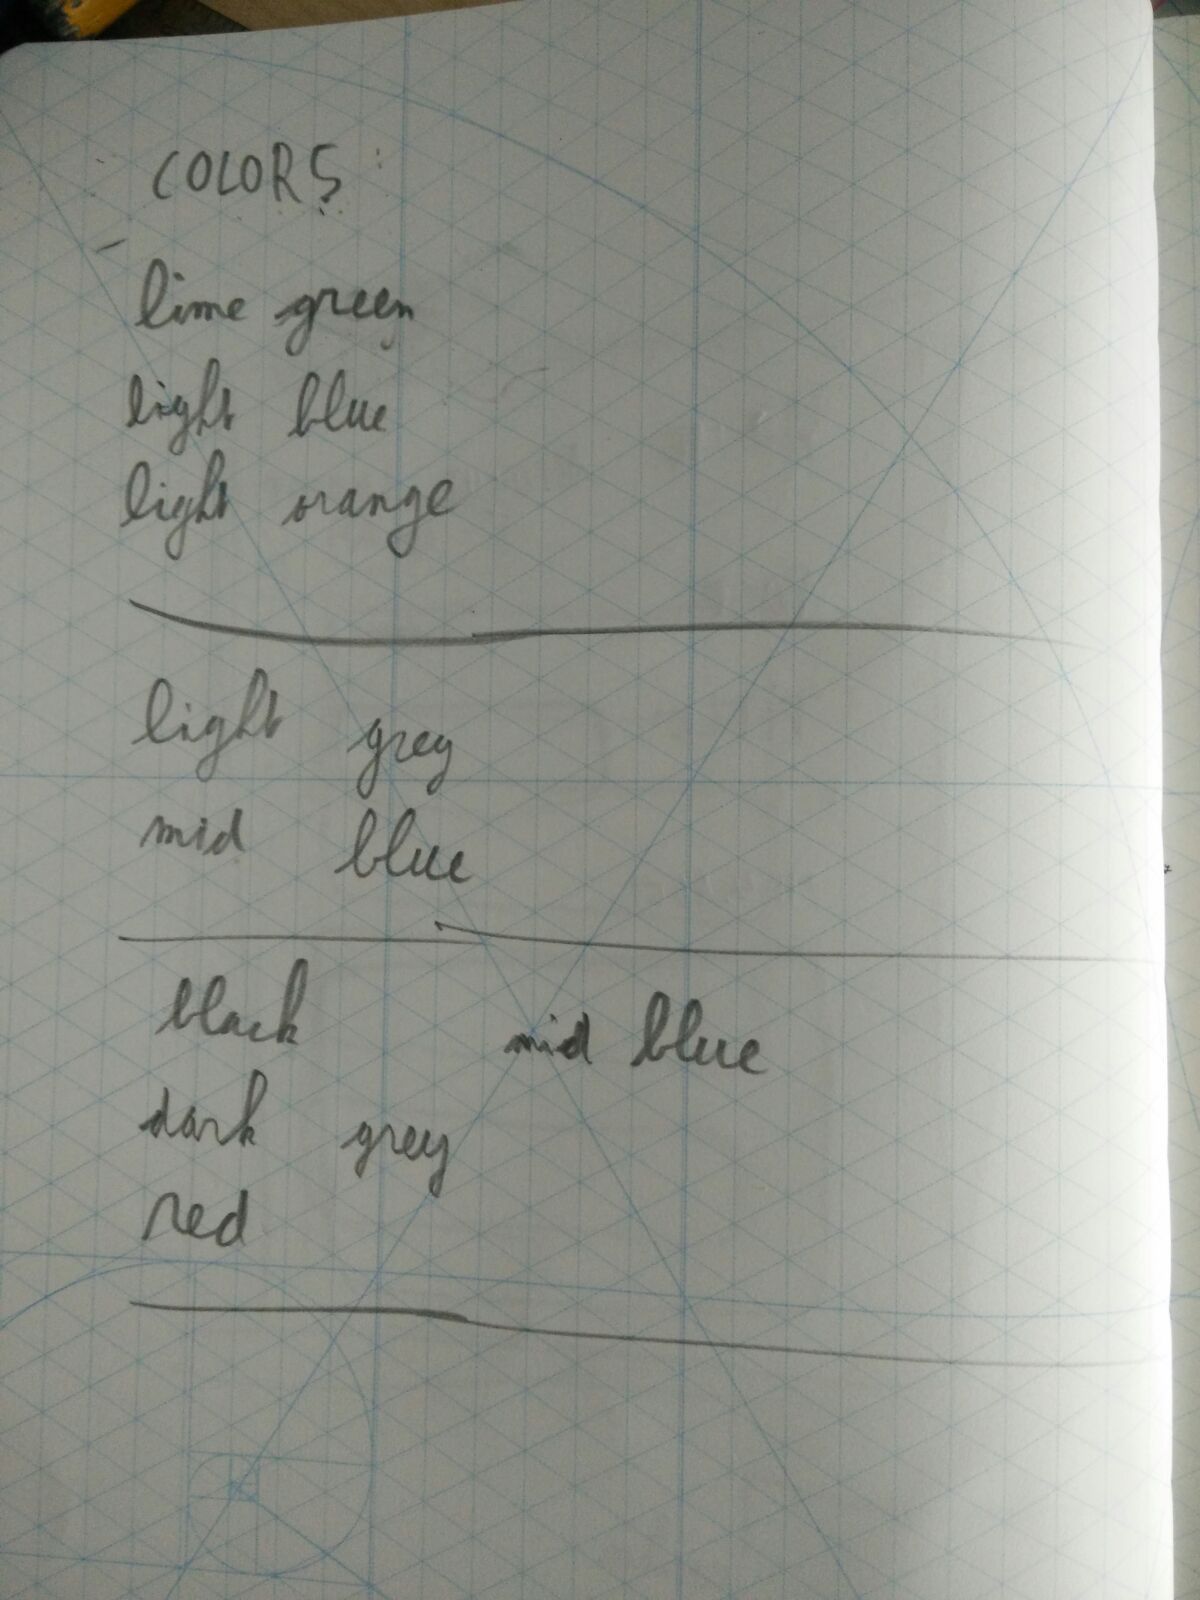 COLORS
lime green
light blue
light orange
light grey
mid blue
black mid blue
dark grey
red